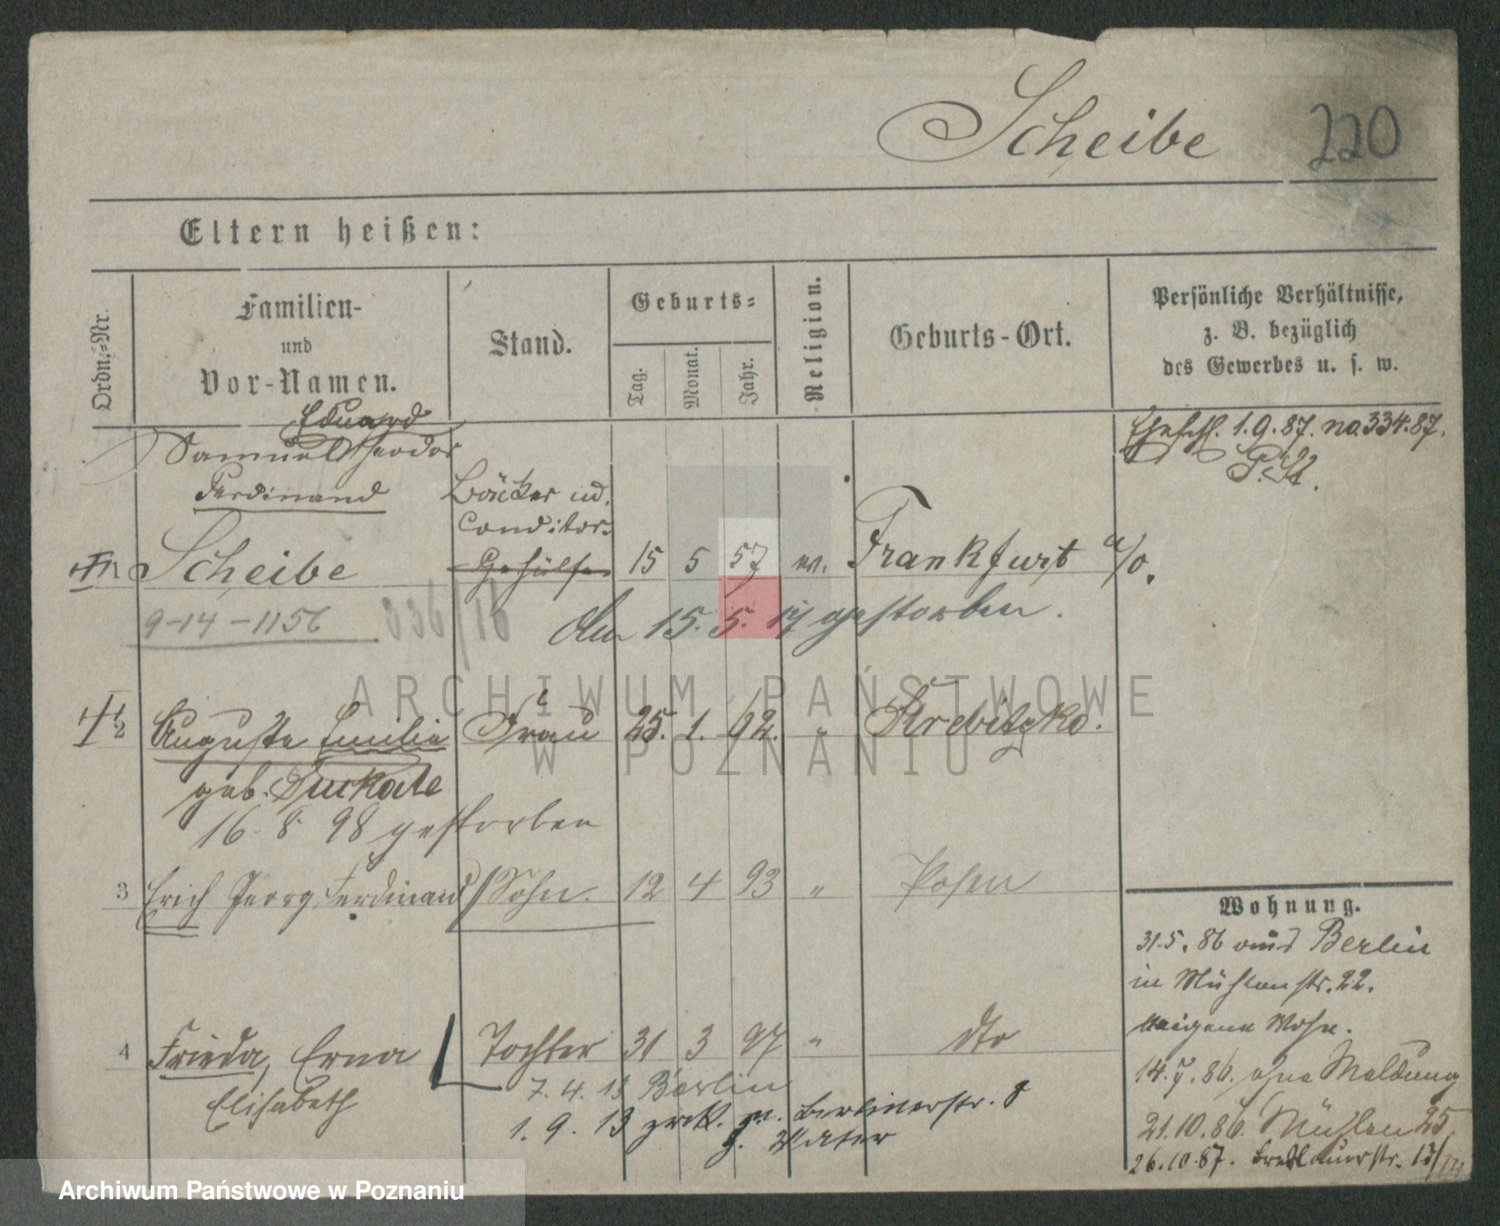 Scheibe 220
Eltern heißen:
Ordn.-Nr.
Familien-
und
Vor-Namen.
Stand.
Geburts-
Tag.
Monat.
Jahr.
Religion.
Geburts-Ort.
Persönliche Verhältnisse,
z. B. bezüglich
des Gewerbes u. s. w.
Eduard
Samuel Theodor
Ferdinand
Scheibe
Bäcker ud.
Conditor-
Gehülfe
15 5 57 ev. Frankfurt a/O.
1.9.87. no. 334.87.
9-14-1156 336/16
den 15. 5. 17 gestorben.
2 Auguste Emilie Frau 25. 1. 62. " Krebitzko.
geb. Dukate
16. 8. 98 gestorben
3 Erich Georg Ferdinand Sohn. 12 4 93 " Posen
4 Frieda, Erna Tochter 31 3 97 " dto
Elisabeth
7. 4. 13 Berlin
1. 9. 13 zrk. v. Berlinerstr. 8
z. Vater
Wohnung.
31.5.86 aus Berlin
in Mühlenstr. 22.
eigene Wohn.
14.7.86. ohne Meldung
21.10.86. Mühlen 25
26.10.87. Breslauerstr. 13/
ARCHIWUM PAŃSTWOWE
W POZNANIU
Archiwum Państwowe w Poznaniu